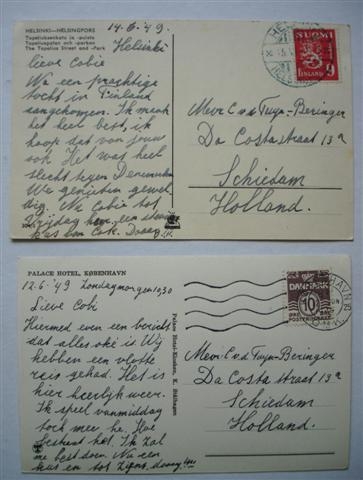 HELSINKI—HELSINGFORS
Topeliuksenkatu ja -puisto
Topeliusgatan och -parken
The Topelius Street and -Park
14.6.'49.
Helsinki
Lieve Cobie
Na een prachtige
tocht in Finland
aangekomen. Ik maak
het heel best, ik
hoop dat van jouw
ook. Het was heel
slecht tegen Denemarken
We genieten gewel-
dig. Nu Cobie tot
Vrijdag hoor, een
kus van Cok. Daaag
SUOMI
FINLAND
9
Mevr C v d Tuyn-Beringer
Da Costastraat 13a
Schiedam
Holland.
PALACE HOTEL, KØBENHAVN
12.6.'49 Zondagmorgen 10,30
Lieve Cobi
Hiermed even een bericht
dat alles oké is Wij
hebben een vlotte
reis gehad. Het is
hier heerlijk weer.
Ik speel vanmiddag
toch mee hè. Hoe
bestaat het. Ik zal
me best doen. Nu een
kus en tot ziens, daaag
Palace Hotel-Kiosken, K.
DANMARK
10
Mevr C v d Tuyn-Beringer
Da Costastraat 13a
Schiedam
Holland.